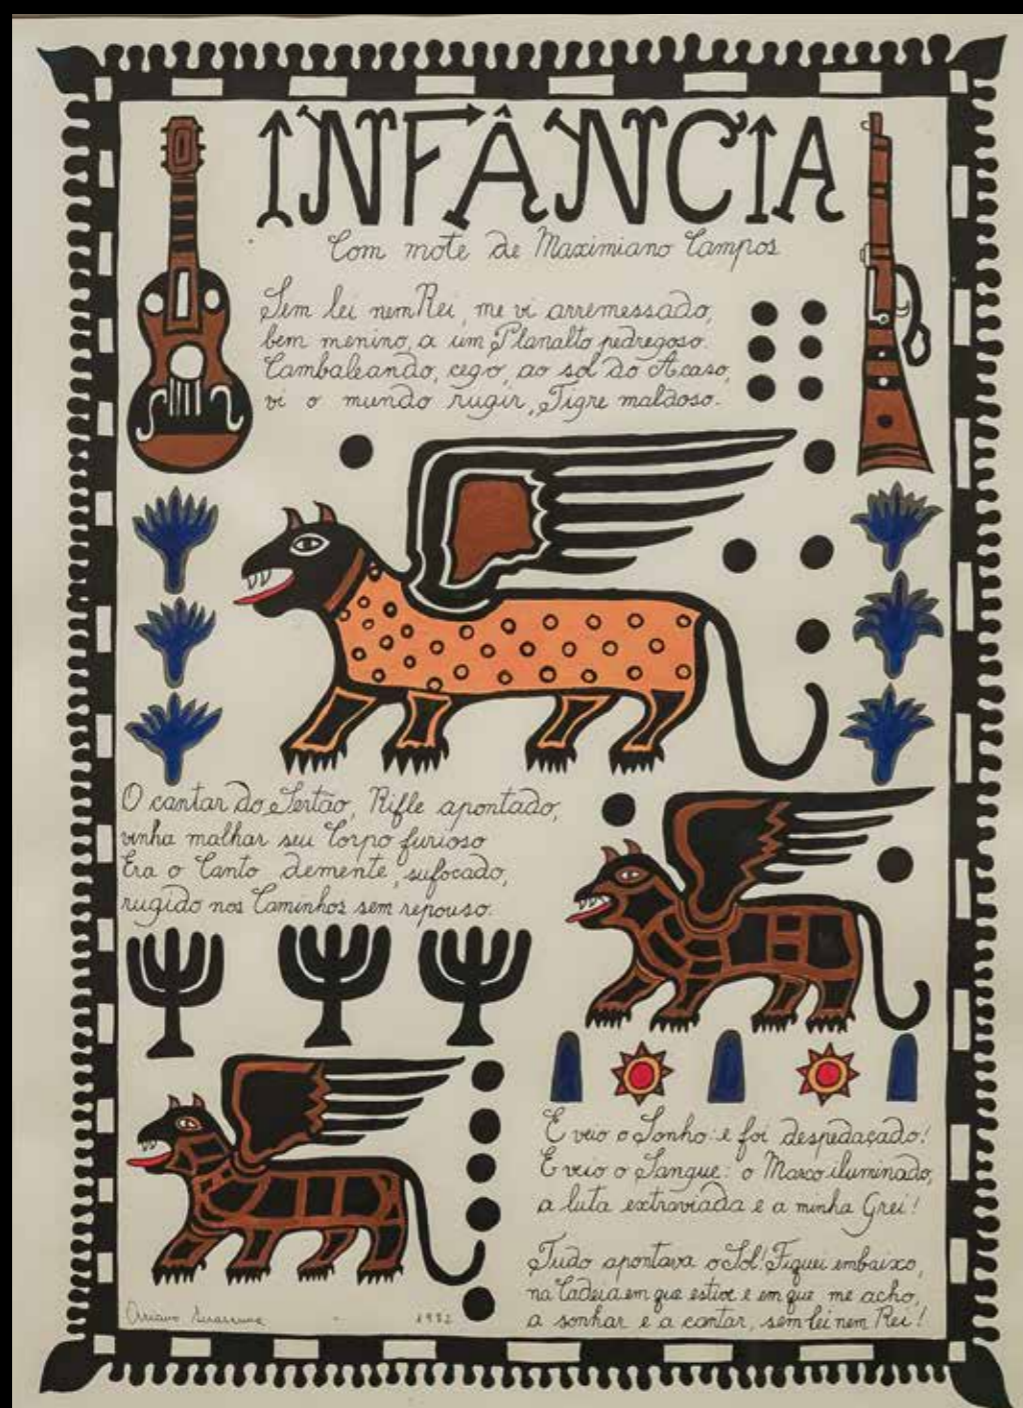 INFÂNCIA
Com mote de Maximiano Campos
Sem lei nem Rei, me vi arremessado,
bem menino, a um Planalto pedregoso.
Cambaleando, cego, ao sol do Acaso,
vi o mundo rugir, Tigre maldoso.
O cantar do Sertão, Rifle apontado,
vinha malhar seu Corpo furioso
Era o Canto demente, sufocado,
rugido nos Caminhos sem repouso.
E veio o Sonho: e foi despedaçado!
E veio o Sangue: o Marco iluminado,
a luta extraviada e a minha Grei!
Tudo apontava o Sol! Fiquei embaixo,
na Cadeia em que estive e em que me acho,
a sonhar e a cantar, sem lei nem Rei!
Ariano Suassuna